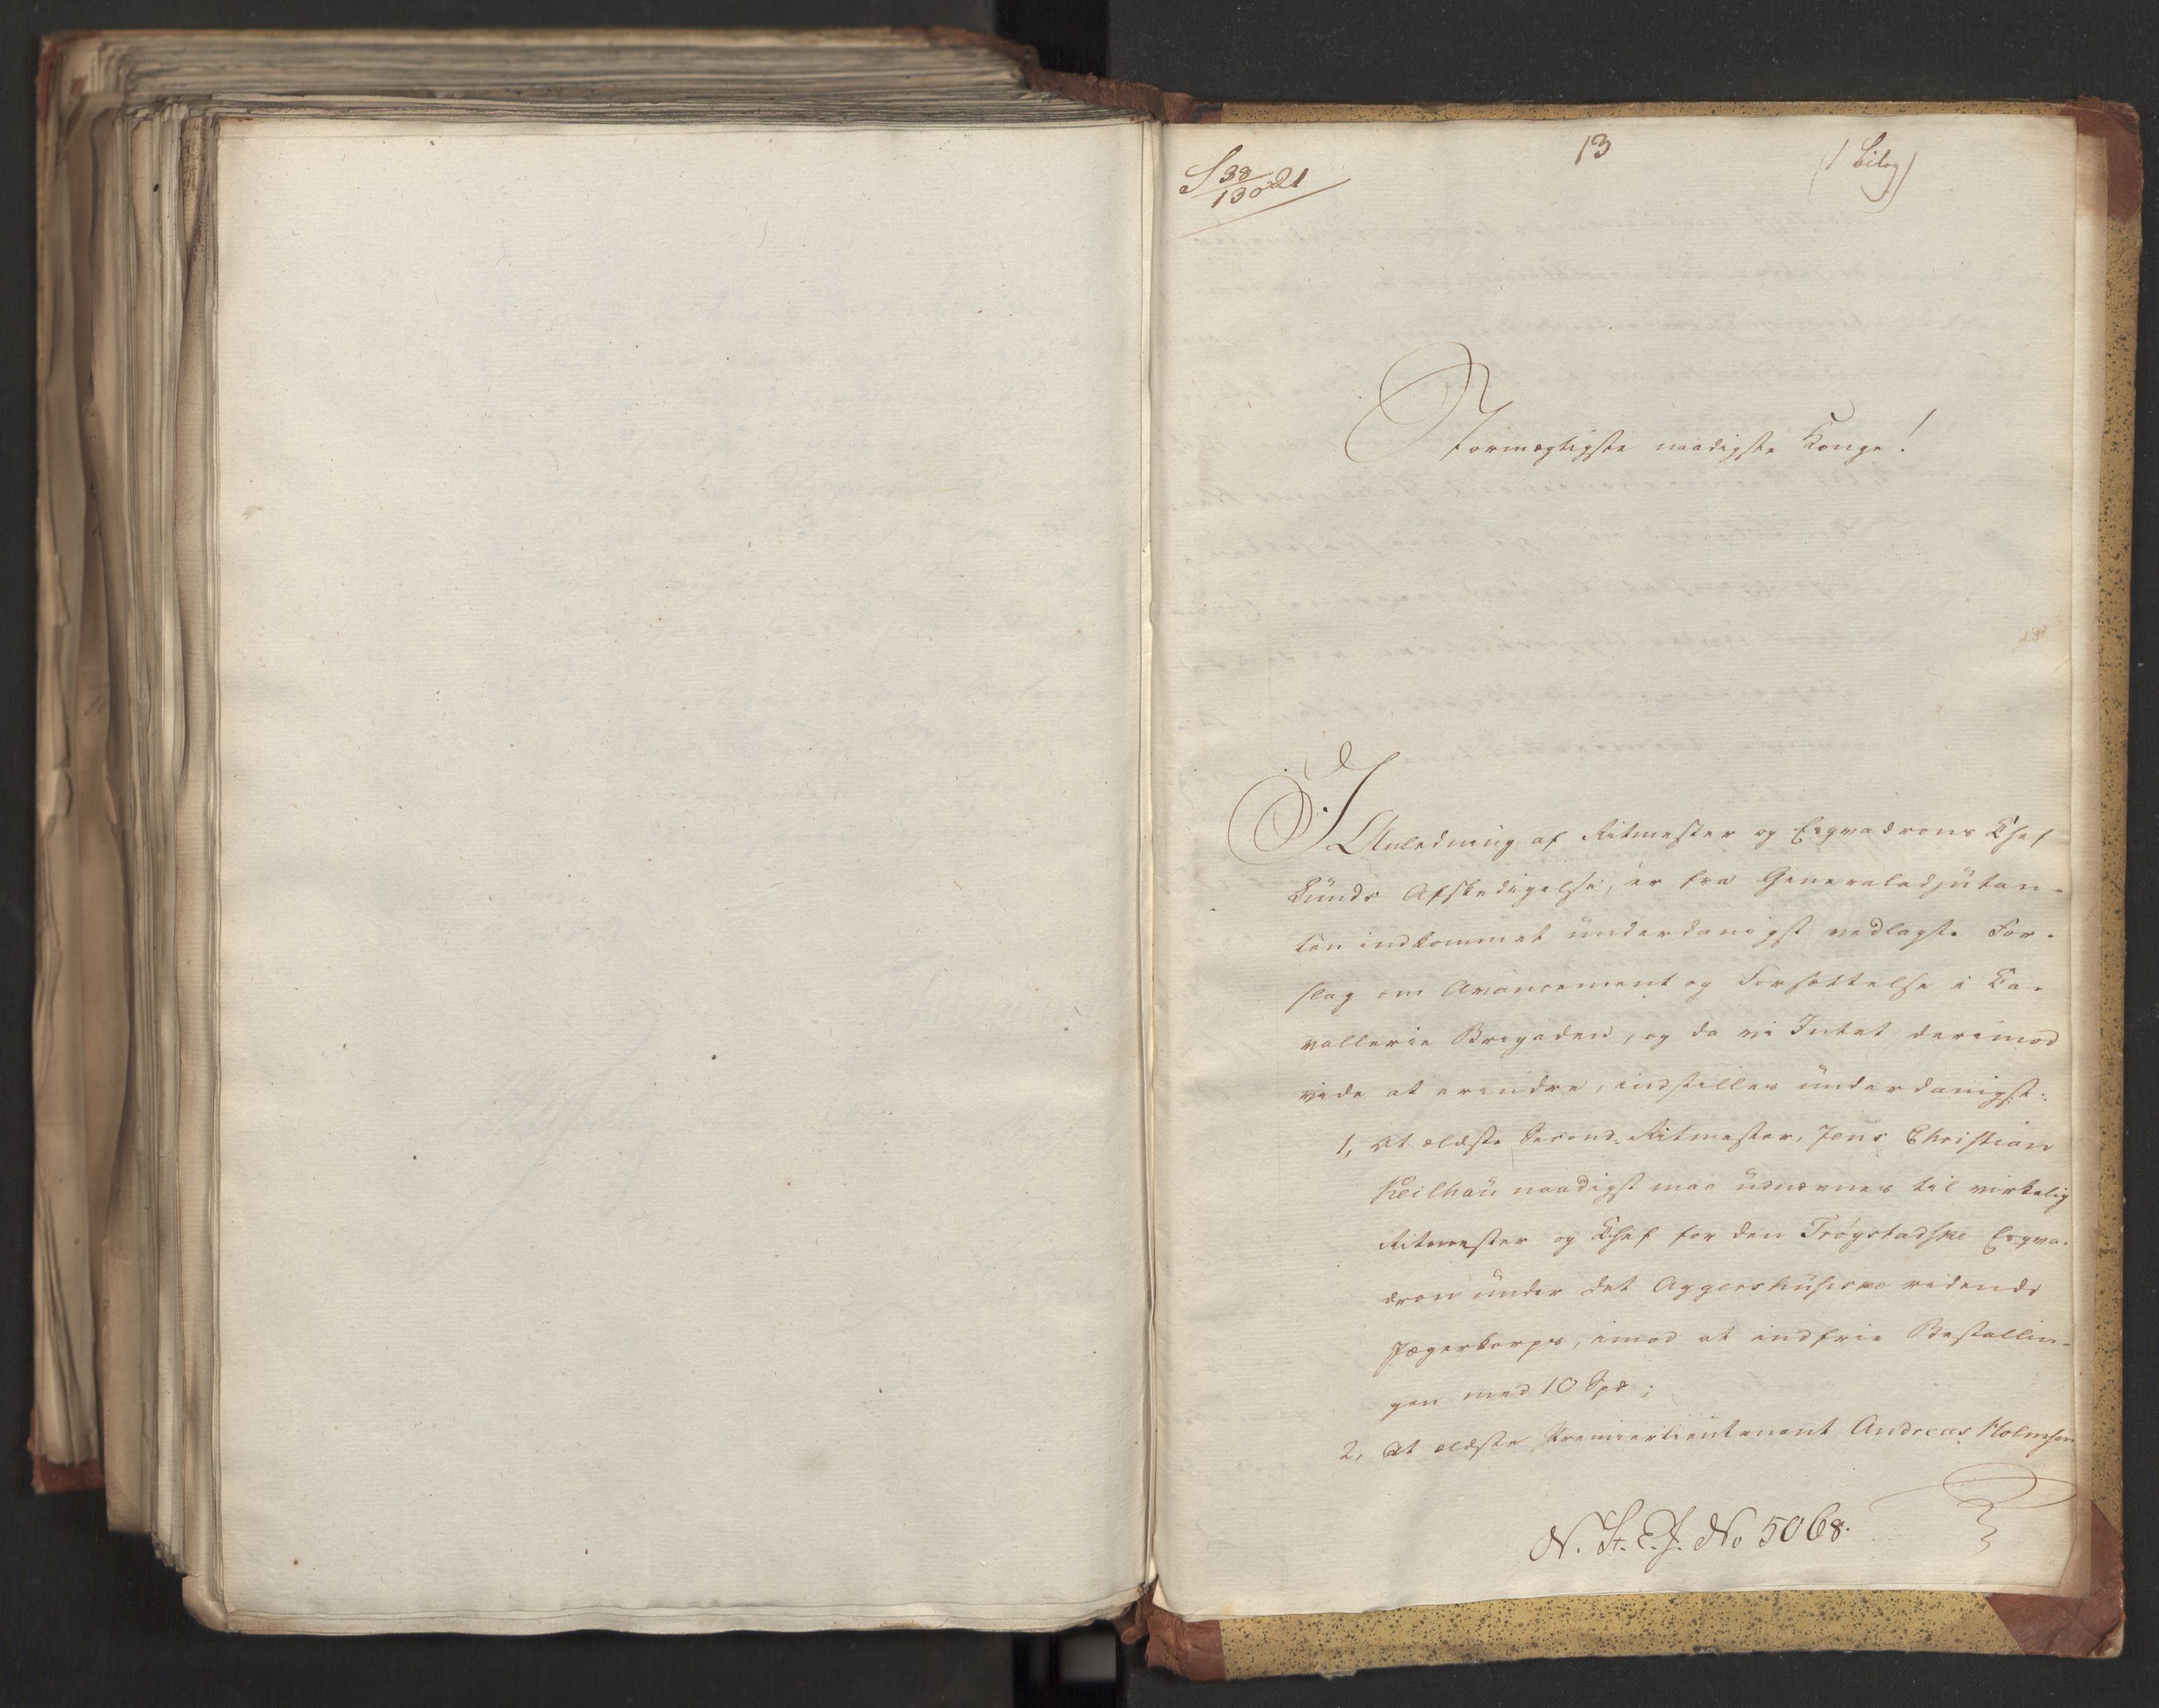 S 38/130 21
13
(1 Bilag)
Stormægtigste naadigste Konge!
I Anledning af Ritmester og Esqvadrons Chef
Lunds Afskedigelse, er fra Generaladjutan-
ten indkommet underdanigst vedlagte For-
slag om Avancement og Forsættelse i Ca-
vallerie Brigaden, og da vi Intet derimod
vide at erindre, indstilles underdanigst:
1, At ældste Second-Ritmester, Jens Christian
Keilhau naadigst maa udnævnes til virkelig
Ritmester og Chef for den Trøgstadske Esqva-
dron under det Aggershusiske ridende
Jægerkorps, imod at indfrie Bestallin-
gen med 10 Spd;
2, At ældste Premierlieutenant Andreas Holmsen
N. St. E. J. No 5068.